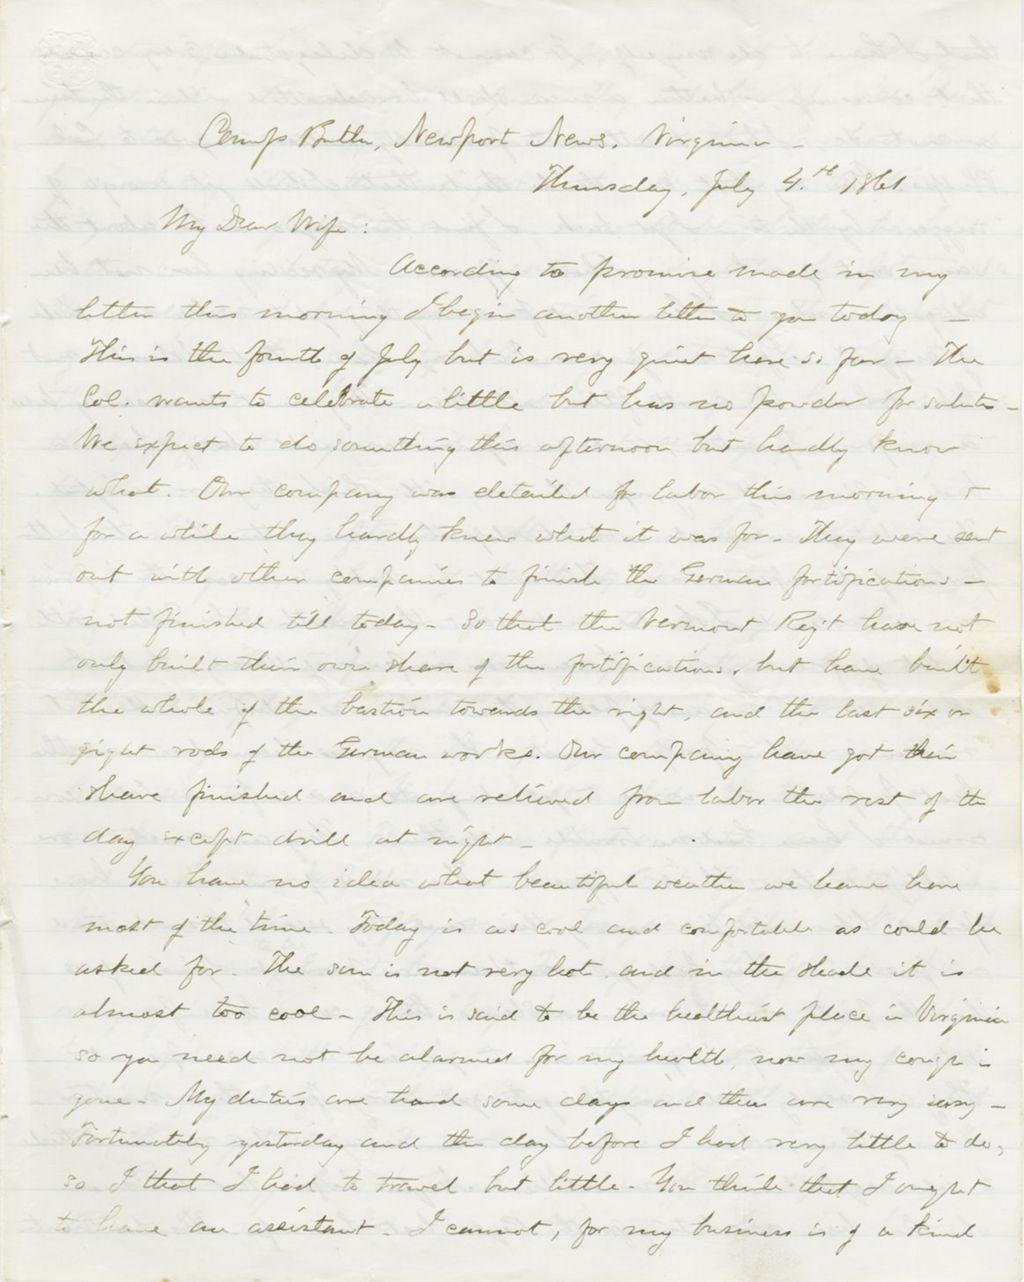 Camp Butler, Newport News, Virginia -
Thursday, July 4.th 1861
My Dear Wife:
According to promise made in my
letter this morning I begin another letter to you today -
This is the fourth of July but is very quiet here so far - The
Col. wants to celebrate a little but has no powder for salute -
We expect to do something this afternoon but hardly know
what. Our company was detailed for labor this morning &
for a while they hardly knew what it was for - They were sent
out with other companies to finish the German fortifications -
not finished till today - So that the Vermont Reg't have not
only built their own share of the fortifications, but have built
the whole of the bastion towards the right, and the last six or
eight rods of the German works. Our company have got their
share finished and are relieved from labor the rest of the
day except drill at night -
You have no idea what beautiful weather we have here
most of the time. Today is as cool and comfortable as could be
asked for. The sun is not very hot and in the shade it is
almost too cool - This is said to be the healthiest place in Virginia
so you need not be alarmed for my health, now my cough is
gone - My duties are hard some days and then are very easy -
Fortunately yesterday and the day before I had very little to do,
so I that I had to travel but little - You think that I ought
to have an assistant - I cannot, for my business is of a kind